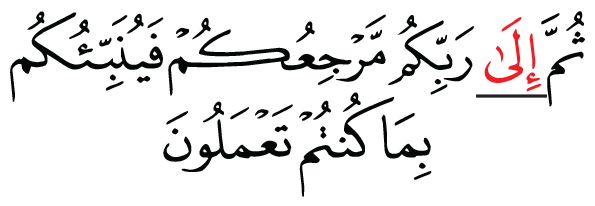 ثُمَّ إِلَىٰ رَبِّكُم مَّرْجِعُكُمْ فَيُنَبِّئُكُم
بِمَا كُنتُمْ تَعْمَلُونَ